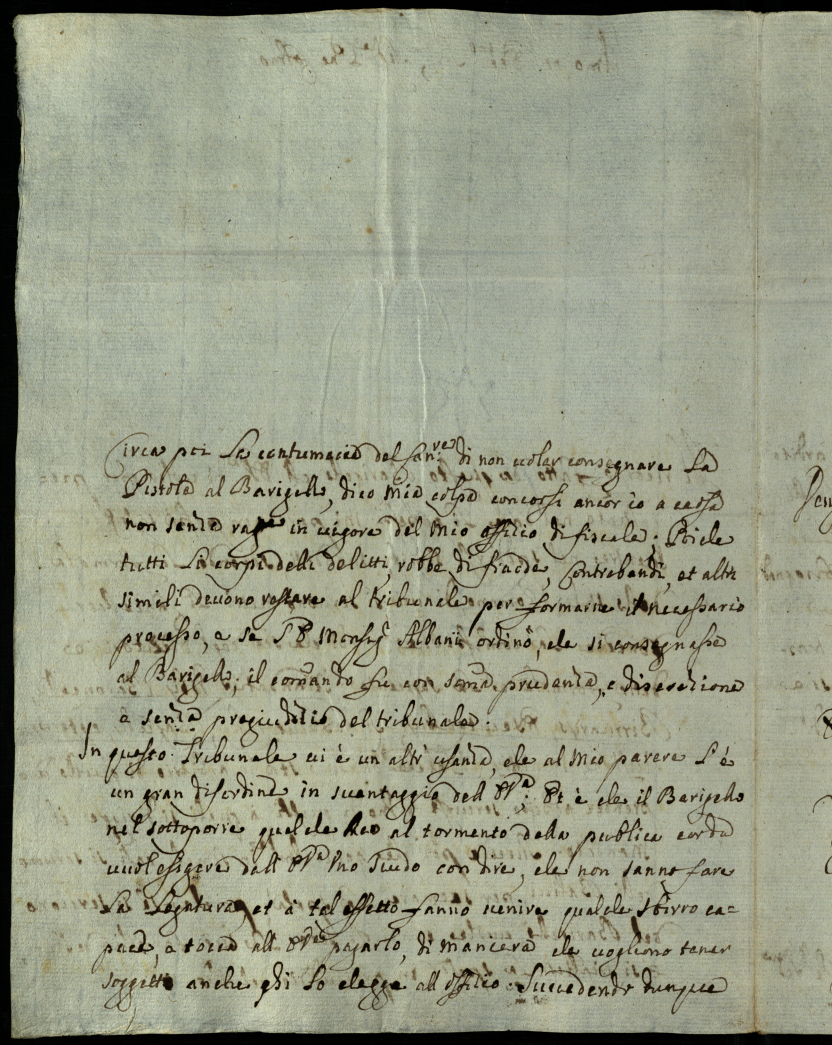 Circa poi la contumacia del Can.re di non voler consegnare la
Pistola al Barigello, dico mia colpa concorsi ancor io a cassa
non senza rag.e in vigore del mio offitio di fiscale; Poiche
tutti li corpi delli delitti, robbe di fraude, Contrabandi, et altri
simili devono restare al tribunale per formarne il necessario
processo, e se Monsig.r Albani ordinò, che si consegnasse
al Barigello, il comando fu con soma prudenza, e discretione
e senza pregiuditio del tribunale.
In questo Tribunale vi è un altr'usanza, che al mio parere l'è
un gran disordine in svantaggio dell' Et è che il Barigello
nel sottoporre qualche Reo al tormento della publica corda
vuol essigere dall uno Scudo con dire, che non sanno fare
la legatura, et a tal effetto fanno venire qualche sbirro ca=
pace, e tocca all pagarlo, di maniera che vogliono tener
soggetto anche chi lo elegge all offitio. Succedendo dunque